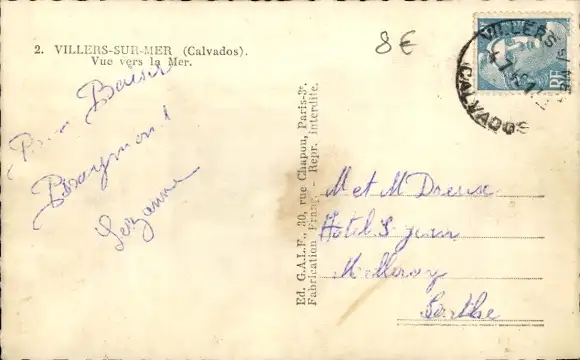 2. VILLERS-SUR-MER (Calvados).
Vue vers la Mer.
8€
VILLERS
CALVADOS
RF
Baiser
Raymond
Suzanne
Ed. G.A.L.F., 30, rue Chapon, Paris-3e.
Fabrication Franç. - Repr. interdite.
M et M Dreux
Hotel S Jean
Sarthe